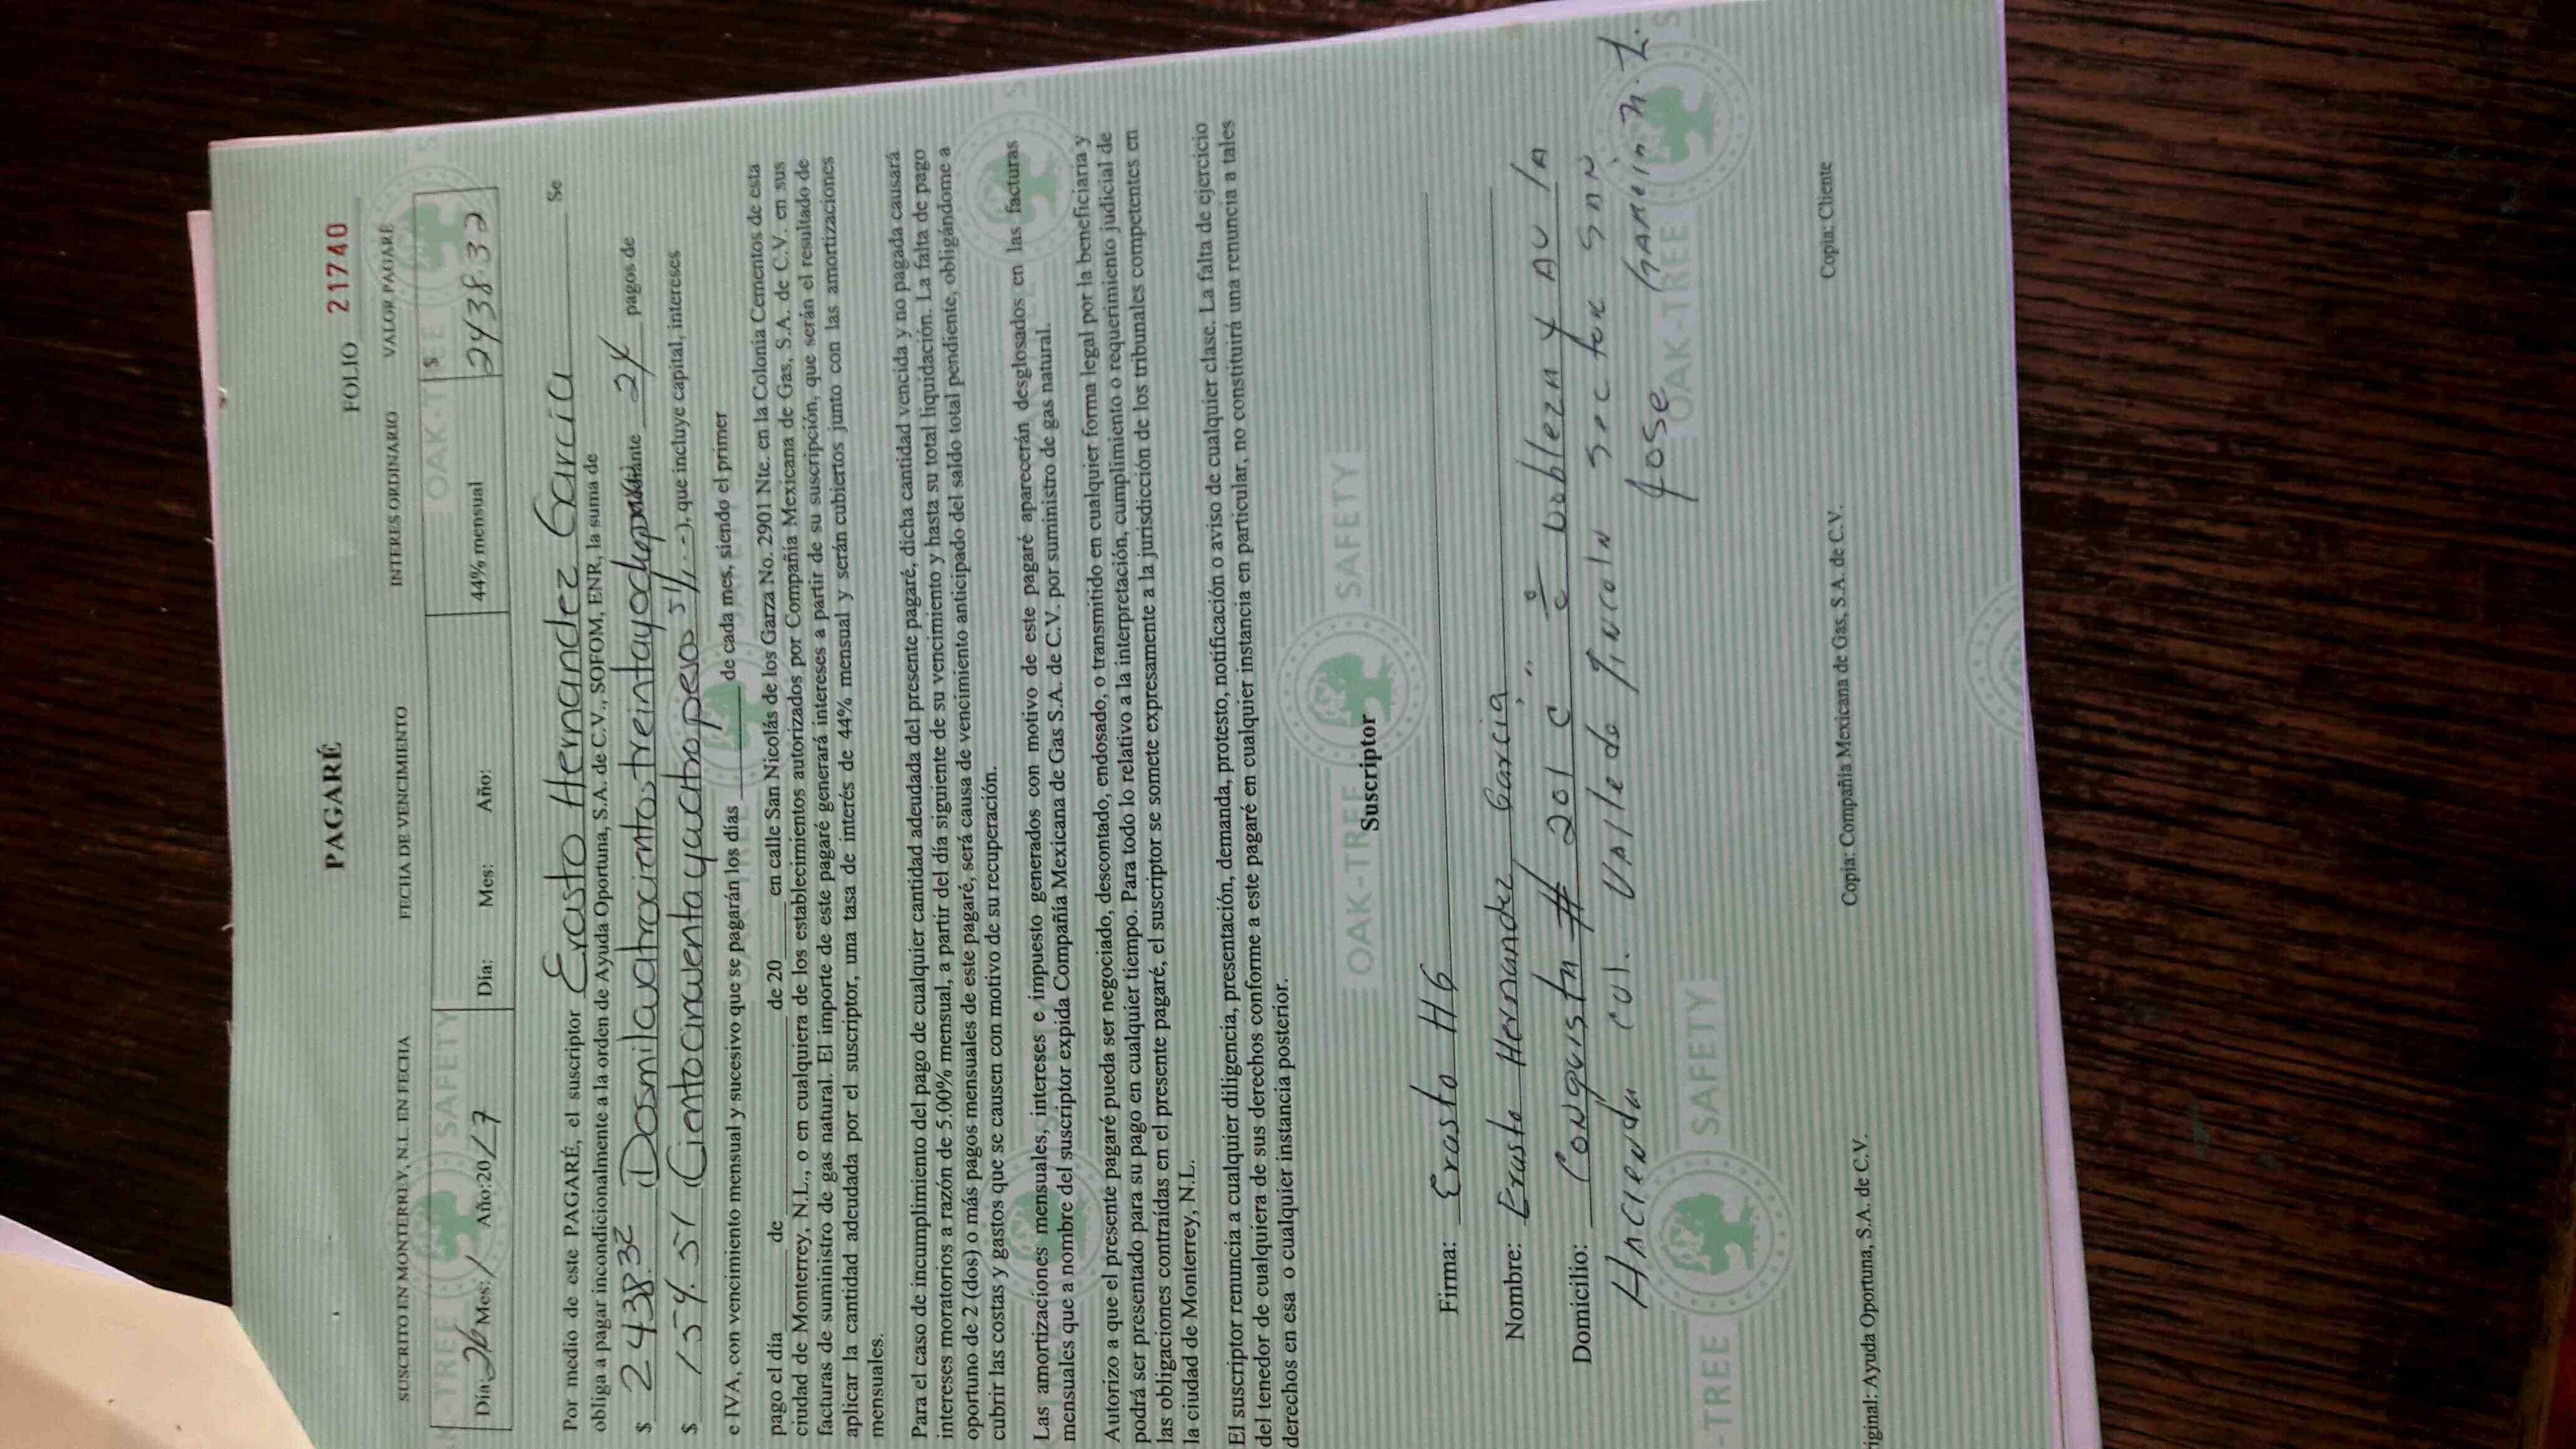 PAGARÉ
FOLIO 21740
SUSCRITO EN MONTERREY, N.L. EN FECHA FECHA DE VENCIMIENTO INTERES ORDINARIO VALOR PAGARÉ
Día: 26 Mes: 1 Año: 2017 Día: Mes: Año: 44% mensual $ 2438.32
Por medio de este PAGARÉ, el suscriptor Erasto Hernandez Garcia Se
obliga a pagar incondicionalmente a la orden de Ayuda Oportuna, S.A. de C.V., SOFOM, ENR, la suma de
$ 2438.32 (Dosmilcuatrocientostreintayocho mediante 24 pagos de
$ 154.51 (Cientocincuentaycuatropeso 51/ ), que incluye capital, intereses
e IVA, con vencimiento mensual y sucesivo que se pagarán los días de cada mes, siendo el primer
pago el día de de 20 en calle San Nicolás de los Garza No. 2901 Nte. en la Colonia Cementos de esta
ciudad de Monterrey, N.L., o en cualquiera de los establecimientos autorizados por Compañía Mexicana de Gas, S.A. de C.V. en sus
facturas de suministro de gas natural. El importe de este pagaré generará intereses a partir de su suscripción, que serán el resultado de
aplicar la cantidad adeudada por el suscriptor, una tasa de interés de 44% mensual y serán cubiertos junto con las amortizaciones
mensuales.
Para el caso de incumplimiento del pago de cualquier cantidad adeudada del presente pagaré, dicha cantidad vencida y no pagada causará
intereses moratorios a razón de 5.00% mensual, a partir del día siguiente de su vencimiento y hasta su total liquidación. La falta de pago
oportuno de 2 (dos) o más pagos mensuales de este pagaré, será causa de vencimiento anticipado del saldo total pendiente, obligándome a
cubrir las costas y gastos que se causen con motivo de su recuperación.
Las amortizaciones mensuales, intereses e impuesto generados con motivo de este pagaré aparecerán desglosados en las facturas
mensuales que a nombre del suscriptor expida Compañía Mexicana de Gas S.A. de C.V. por suministro de gas natural.
Autorizo a que el presente pagaré pueda ser negociado, descontado, endosado, o transmitido en cualquier forma legal por la beneficiaria y
podrá ser presentado para su pago en cualquier tiempo. Para todo lo relativo a la interpretación, cumplimiento o requerimiento judicial de
las obligaciones contraídas en el presente pagaré, el suscriptor se somete expresamente a la jurisdicción de los tribunales competentes en
la ciudad de Monterrey, N.L.
El suscriptor renuncia a cualquier diligencia, presentación, demanda, protesto, notificación o aviso de cualquier clase. La falta de ejercicio
del tenedor de cualquiera de sus derechos conforme a este pagaré en cualquier instancia en particular, no constituirá una renuncia a tales
derechos en esa o cualquier instancia posterior.
OAK-TREE SAFETY
Suscriptor
Firma: Erasto HG
Nombre: Erasto Hernandez Garcia
Domicilio: Conquista # 201 C
Hacienda col. Valle de Lincoln Sector San
Jose Garcia N.L.
OAK-TREE SAFETY
Original: Ayuda Oportuna, S.A. de C.V. Copia: Compañía Mexicana de Gas, S.A. de C.V. Copia: Cliente